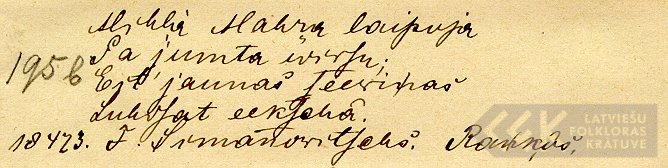 Mihkla Mahra laipoja
Pa jumta wirsu;
1956 Eit' jaunas seewinas
Luhdsat eekschâ.
18473. J. Simanowitschs. Rankâs.
LATVIEŠU
FOLKLORAS
KRĀTUVE